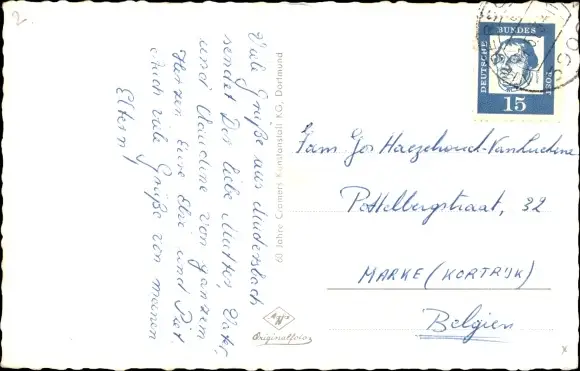 2
Viele Grüße aus Mudersbach
sendet Dir liebe Mutter, Vater,
und Claudine von ganzem
Herzen Eure Elsi und Piet
Auch viele Grüße von meinen
Eltern
60 Jahre Cramers Kunstanstalt KG, Dortmund
Originalfoto
DEUTSCHE BUNDES
15
Fam Jos Haezebrouck-Vanluchene
Pottelbergstraat, 32
MARKE (KORTRIJK)
Belgien
x